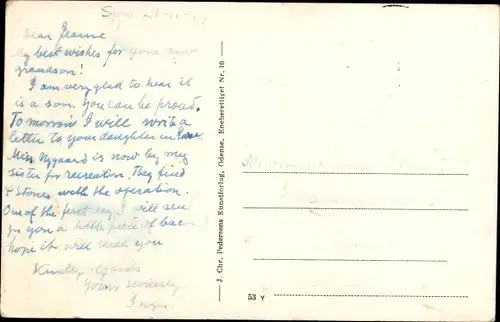 Dear Jeanne
My best wishes for your new
grandson!
I am very glad to hear it
is a son. You can be proud.
To morrow I will write a
letter to your daughter in law.
Miss Nygaard is now by my
sister for recreation. They find
4 stones with the operation.
One of the first day I will sen
you a little piece of
hope it will with you
Kindly regards
Yours sincerely
J. Chr. Pedersens Kunstforlag, Odense. Eneberettiget Nr. 10
53 Y